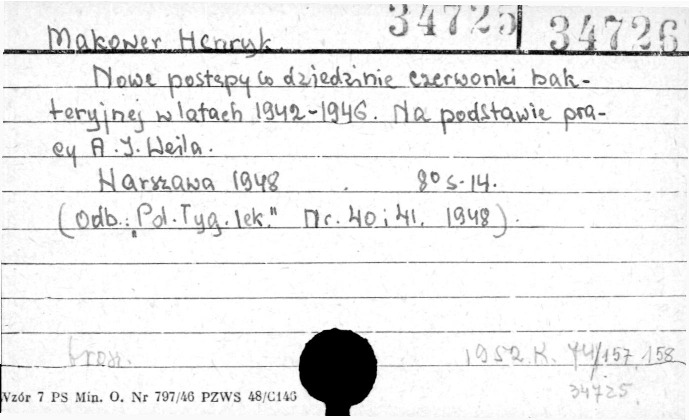 34725 34726
Makower Henryk
Nowe postępy w dziedzinie czerwonki bak-
teryjnej w latach 1942-1946. Na podstawie pra-
cy A. J. Weila.
Warszawa 1948 . 8° s. 14.
(Odb.: „Pol. Tyg. lek." Nr. 40 i 41. 1948).
brosz.
1952. K. 74/157, 158
34725
Wzór 7 PS Min. O. Nr 797/46 PZWS 48/C146